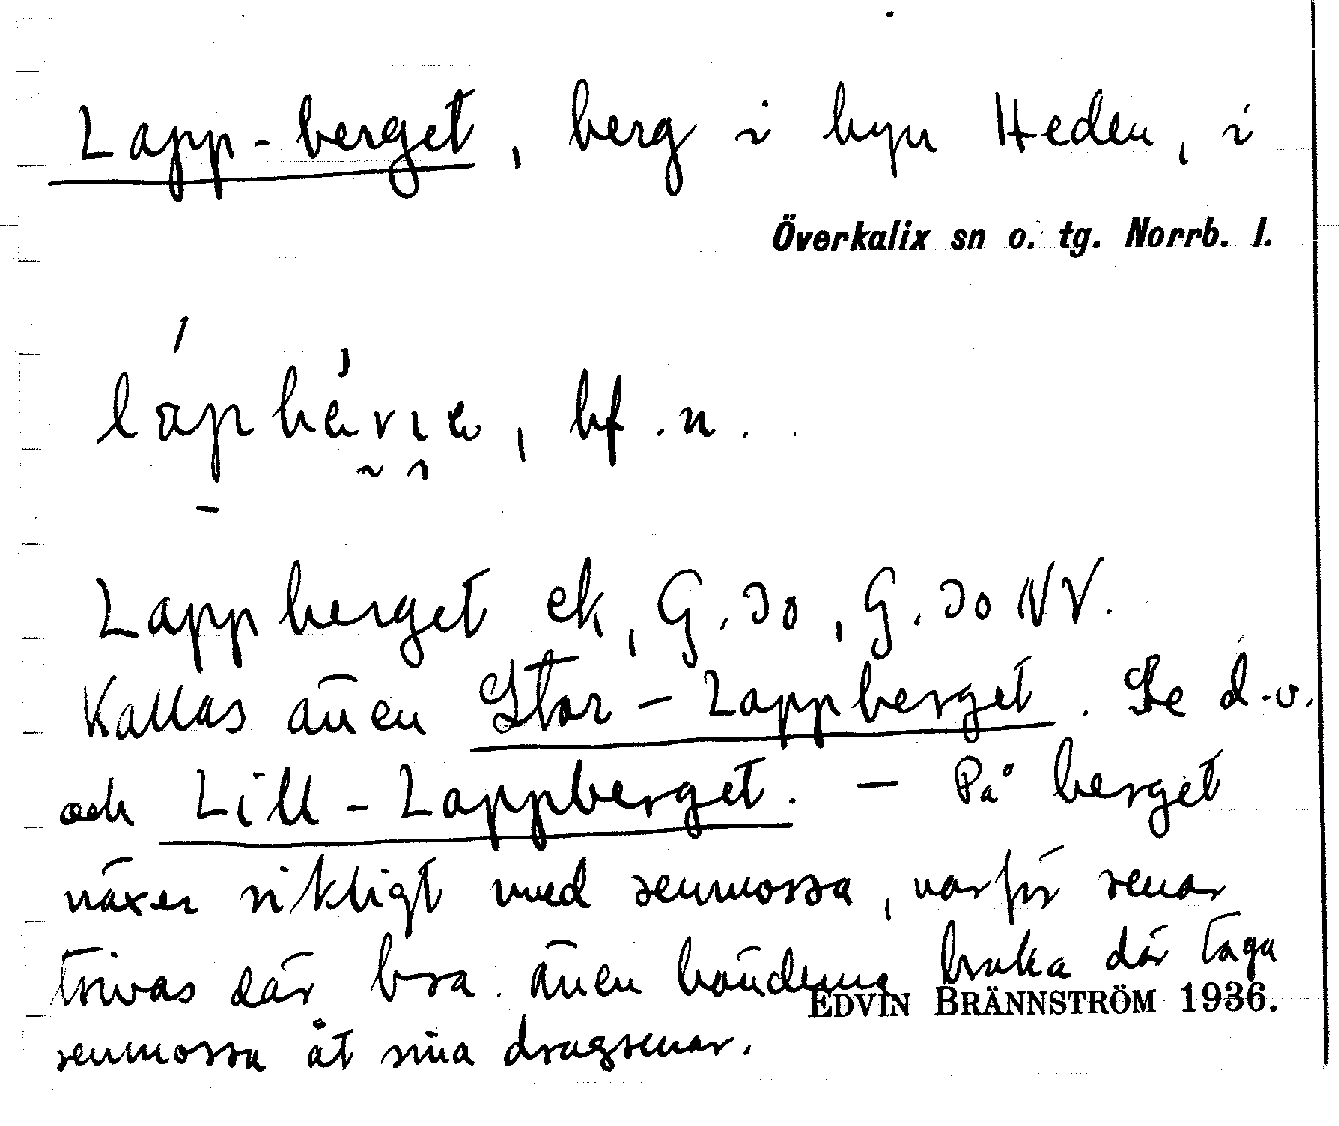 Lapp-berget, berg i byn Heden, i
Överkalix sn o. tg. Norrb. l.
bf. n.
Lappberget ek, G. 30, G. 30 NV.
Kallas även Stor-Lappberget. Se d.o.
och Lill-Lappberget. — På berget
växer rikligt med renmossa, varför renar
trivas där bra. Även bönderna bruka där taga
EDVIN BRÄNNSTRÖM 1936.
renmossa åt sina dragrenar.